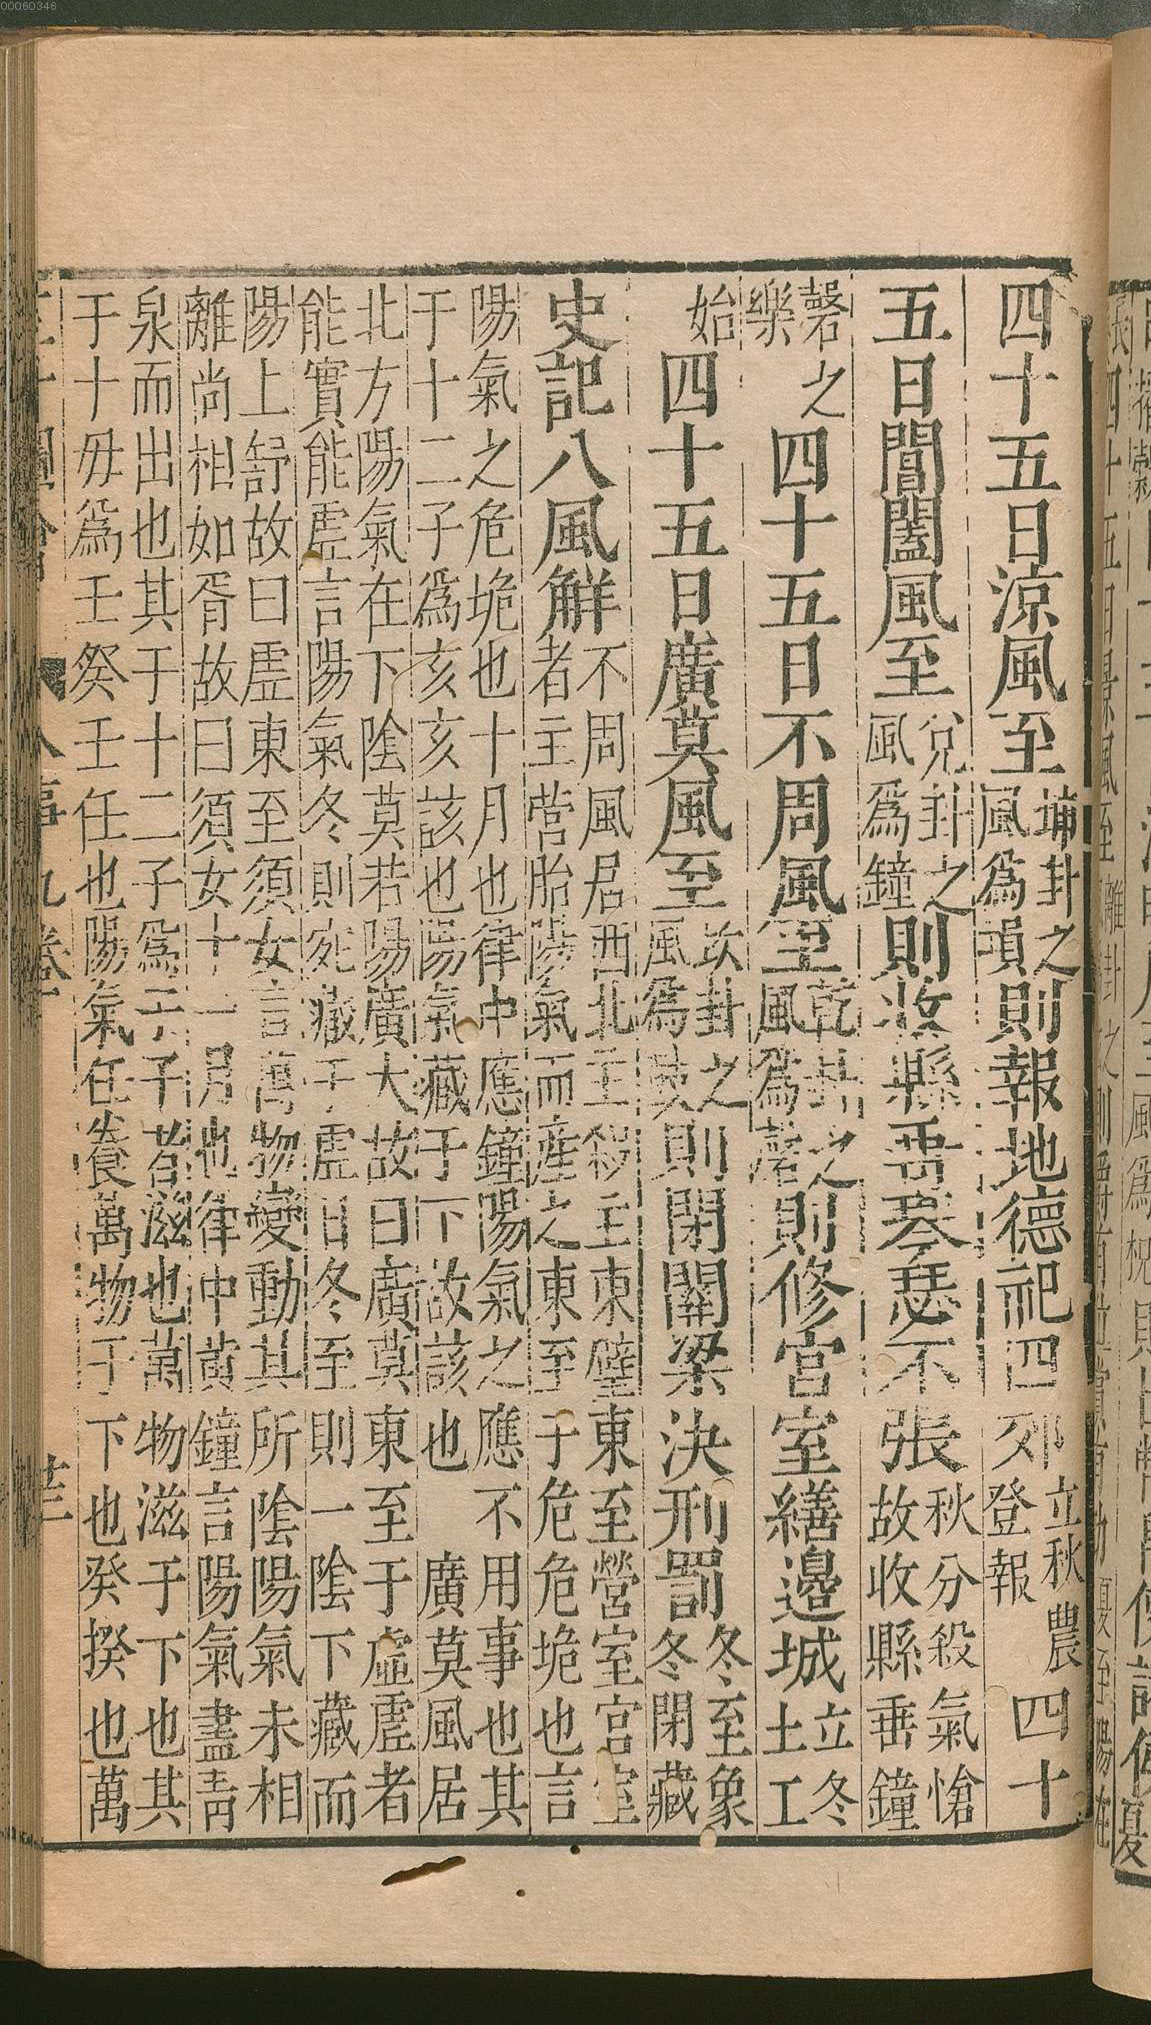 四十五日涼風至埔卦之風爲塤則報地德祀四郊立秋農登報四十
五日閶闔風至兌卦之風爲鐘則收縣垂琴瑟不張秋分殺氣愴故收縣垂鐘
磬之樂四十五日不周風至乾卦之風爲磬則修宮室繕邊城立冬土工
始四十五日廣莫風至坎卦之風爲鼓則閉關梁決刑罰冬至象冬閉藏
史記八風解
不周風居西北主殺主東壁東至營室宮室
者主營胎陽氣而產之東至于危危垝也言
陽氣之危垝也十月也律中應鐘陽氣之應不用事也其
于十二子爲亥亥該也陽氣藏于下故該也 廣莫風居
北方陽氣在下陰莫若陽廣大故曰廣莫東至于虛虛者
能實能虛言陽氣冬則宛藏于虛日冬至則一陰下藏而
陽上舒故曰虛東至須女言萬物變動其所陰陽氣未相
離尚相如胥故曰須女十一月也律中黃鐘言陽氣盡青
泉而出也其于十二子爲子子者滋也萬物滋于下也其
于十毋爲壬癸壬任也陽氣任養萬物于下也癸揆也萬
00060346